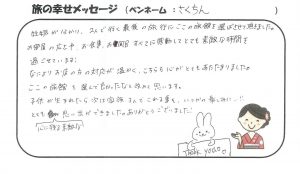 旅の幸せメッセージ（ペンネーム：さくちん）
妊娠がわかり、2人で行く最後の旅行にこの旅館を選ばせて頂きました。
お部屋の広さや、お食事、お すべてに感動してとても素敵な時間を
過ごせています。
なによりお店の方の対応が温かく、こちらも心がとてもあたたまりました。
ここの旅館を選んで良かったなと改めて思います。
子供が生まれたら次は家族3人でこれる事を、いつかの楽しみに…!!
とても 思い出ができました。ありがとうございました!
心に残る素敵な
Thank you